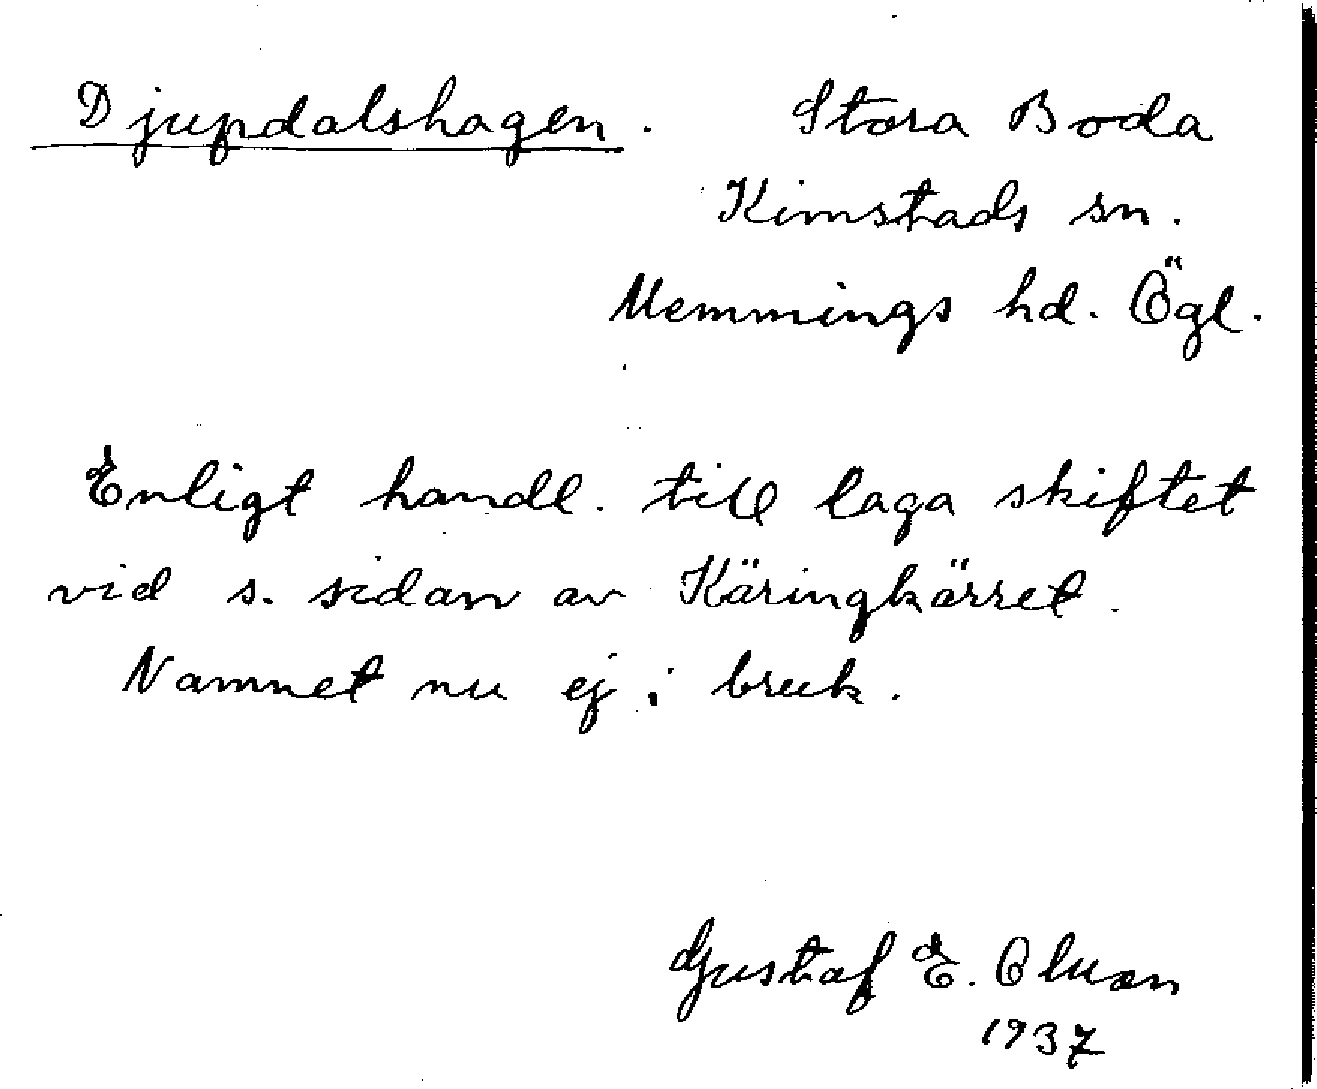 Djupdalshagen. Stora Boda
Kimstads sn.
Memmings hd. Ögl.
Enligt handl. till laga skiftet
vid s. sidan av Käringkärret.
Namnet nu ej i bruk.
Gustaf E. Olsson
1937